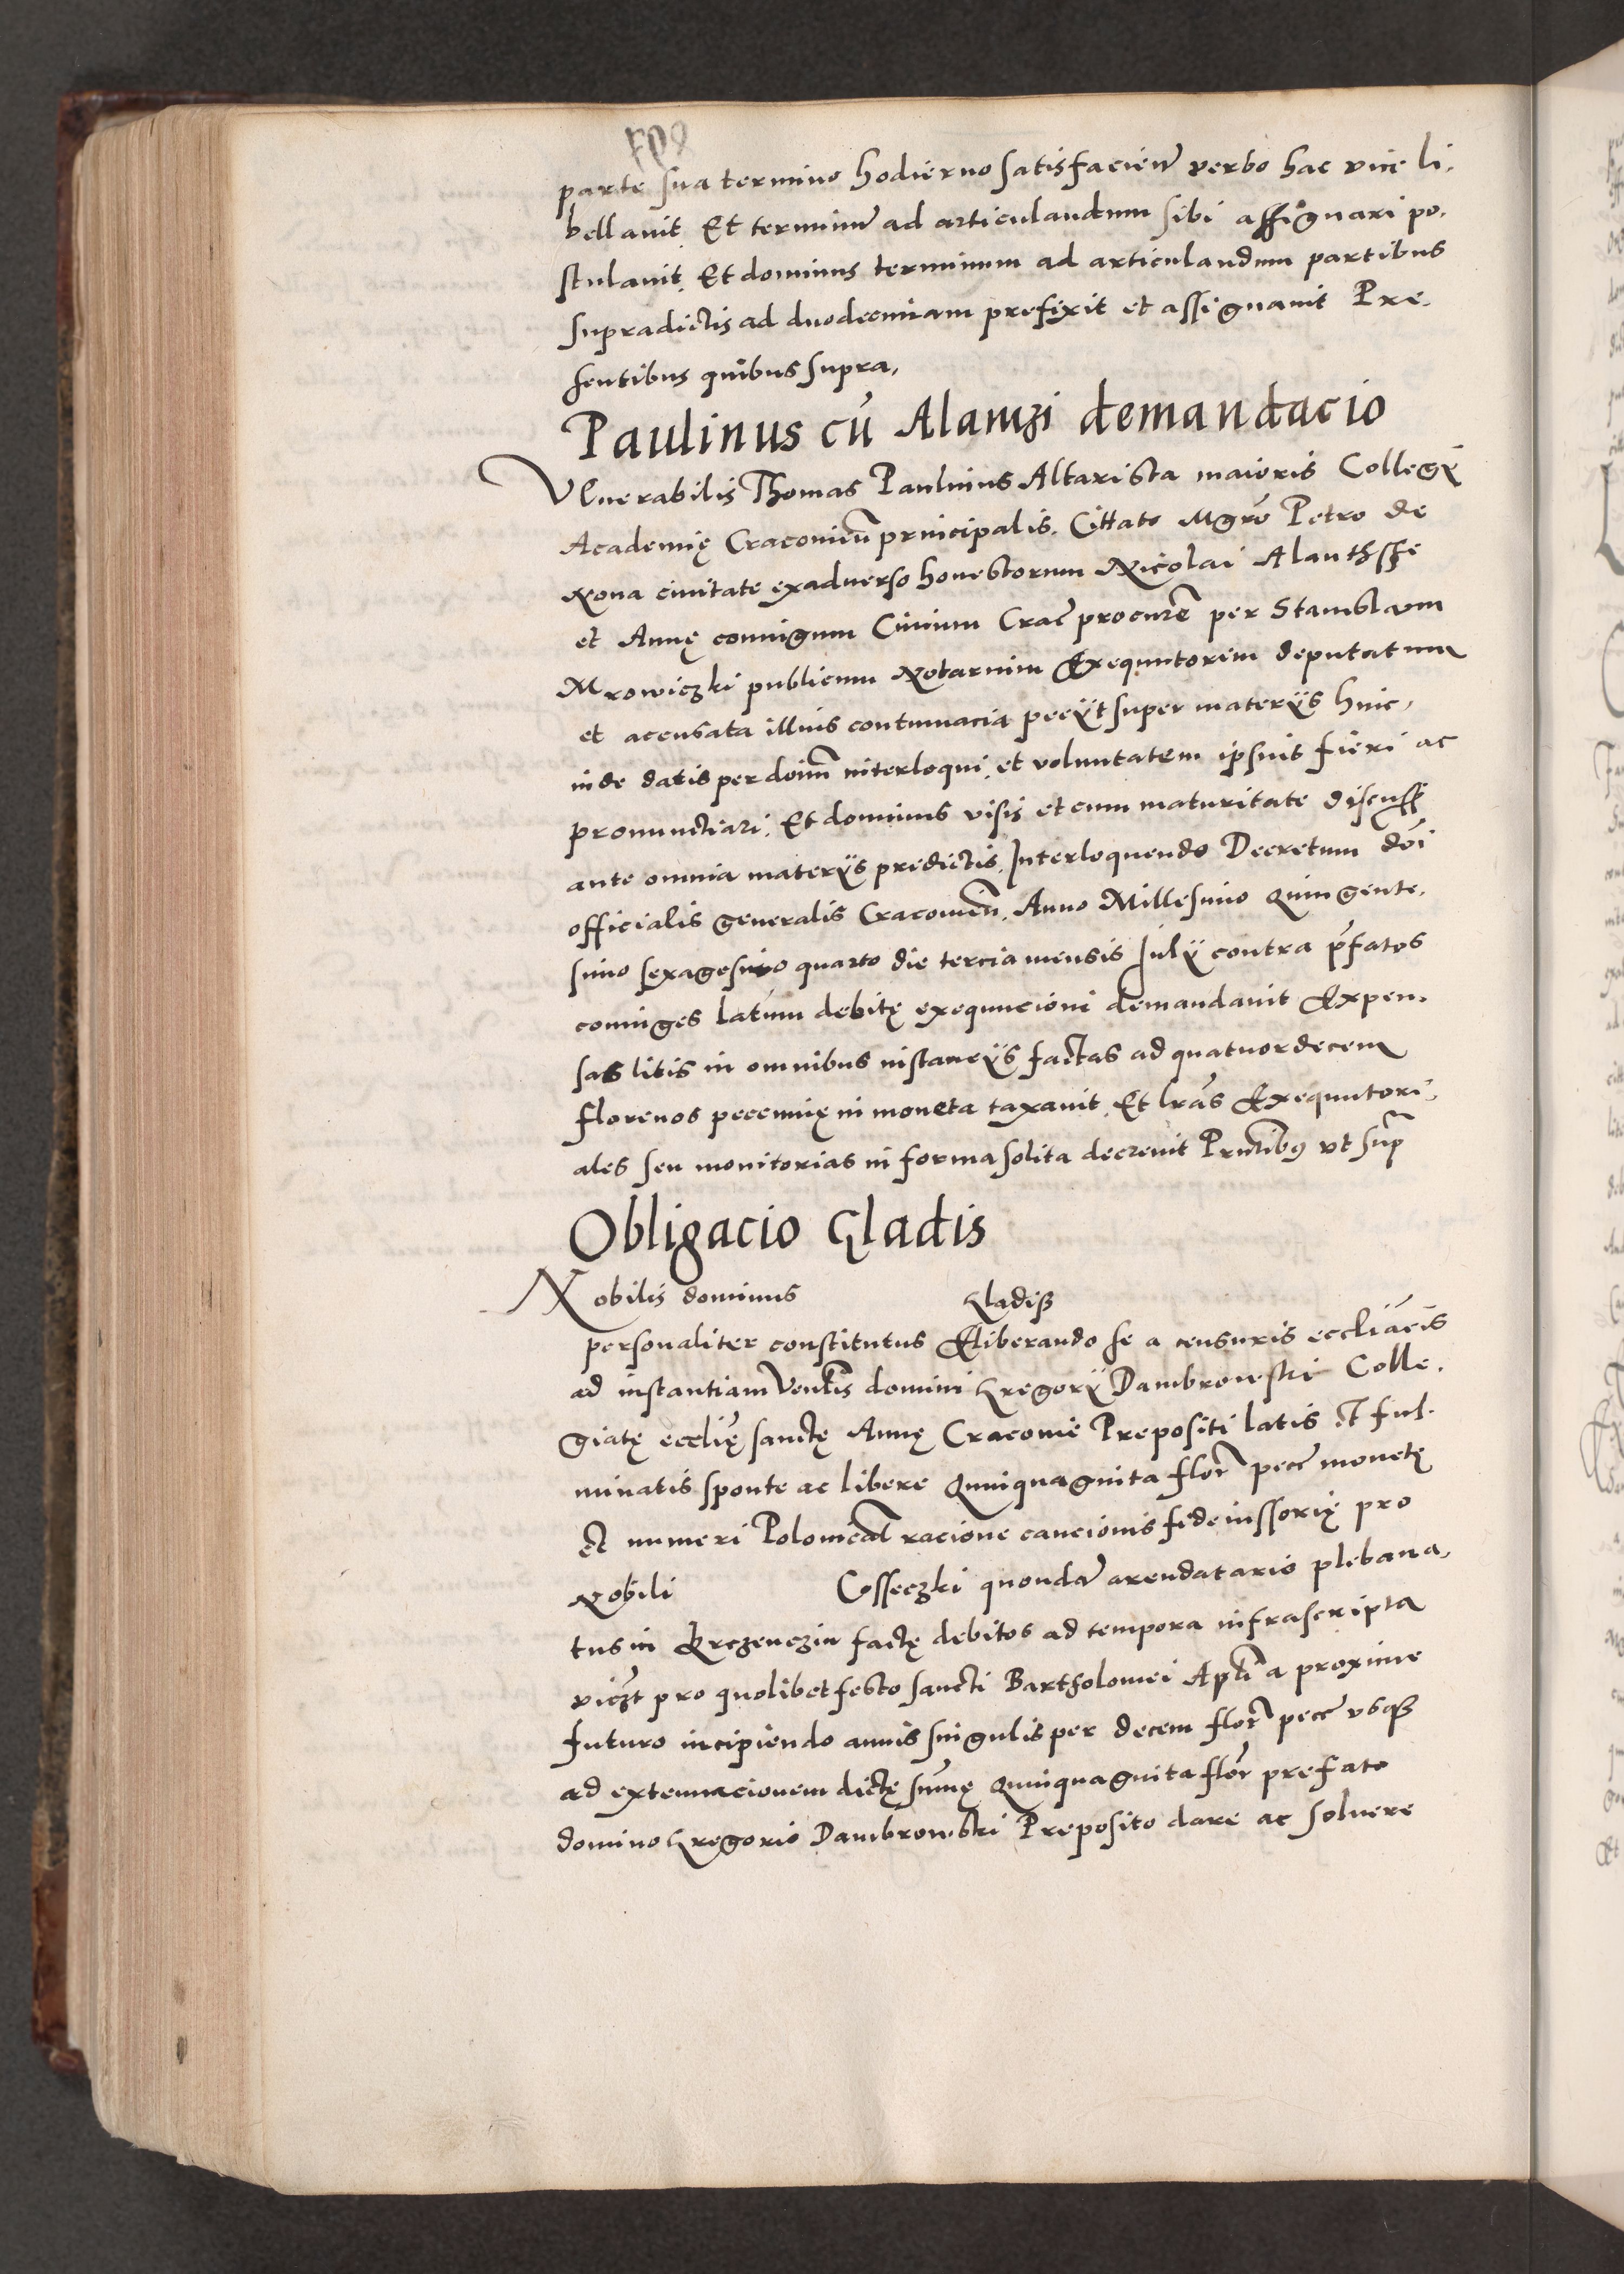 parte sua termino hodierno satisfacien̄ verbo hac vice li-
bellauit. Et terminū ad articulandum sibi assignari po-
stulauit. Et dominus terminum ad articulandum partibus
supradictis ad duodecimam prefixit et assignauit Pre-
sentibus quibus supra,
Paulinus cū Alantzi demandacio
Venerabilis Thomas Paulinus Altarista maioris Collegÿ
Academię Cracouien̄ principalis. Cittato Mgrō Petro de
Noua ciuitate exaduerso honestorum Nicolai Alanthsze
et Annę coniugum Ciuium Crac̄ procurē per Stanislaum
Mrowiczki publicum Notarium Exequutorem deputatum
et accusata illius contumacia pecÿt super materÿs hinc,
inde datis per doīm interloqui, et voluntatem ipsius fieri ac
pronunctiari. Et dominus visis et cum maturitate discussis
ante omnia materÿs predictis, Interloquendo Decretum dōi
officialis generalis Cracouien̄, Anno Millesimo quingente-
simo sexagesimo quarto die tercia mensis Julÿ contra p̄fatos
coniuges latum debitę exequucioni demandauit Expen-
sas litis in omnibus instancÿs factas ad quatuordecem
florenos peccunię in moneta taxauit, Et lrās Exequutori-
ales seu monitorias in forma solita decreuit Pntibꝰ vt sup̄
Obligacio Gladis
Nobilis dominus Gladisz
personaliter constitutus Eliberando se a censuris ecclīacīs
ad instantiam Venlīs domini Gregorÿ Dambrowski Colle-
giatę ecclīę sanctę Annę Cracouię Prepositi latis et ful-
minatis sponte ac libere Quinquaginta flor̄ pecc̄ monetę
et numeri Polonical̄ racione caucionis fideiussorię pro
Nobili Cosseczki quondā arendatario plebana-
tus in Krczenczin factę debitos ad tempora infrascripta
viczt̄ pro quolibet festo sancti Bartholomei Apłi a proxime
futuro incipiendo annis singulis per decem flor̄ pecc̄ vsqꝫ
ad extenuacionem dictę sūmę Quinquaginta flor̄ prefato
domino Gregorio Dambrowski Preposito dare ac soluere